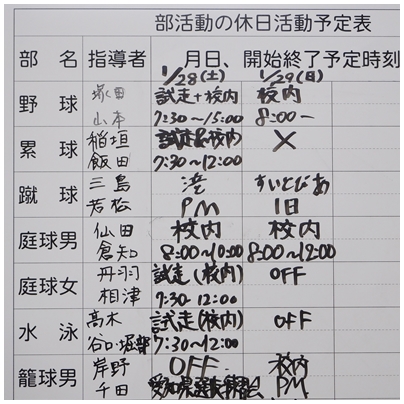 部活動の休日活動予定表
部 名 指導者 月日、開始終了予定時刻
1/28(土) 1/29(日)
野 球 塚田 試走+校内 校内
山本 7:30～15:00 8:00～
累 球 稲垣 試走&校内 ×
飯田 7:30～12:00
蹴 球 三島 港 すいとぴあ
若松 PM 1日
庭球男 仙田 校内 校内
倉知 8:00～10:00 8:00～12:00
庭球女 丹羽 試走(校内) OFF
相津 7:30 12:00
水 泳 高木 試走(校内) OFF
谷口・堀部 7:30～12:00
籠球男 岸野 OFF 校内
千田 PM